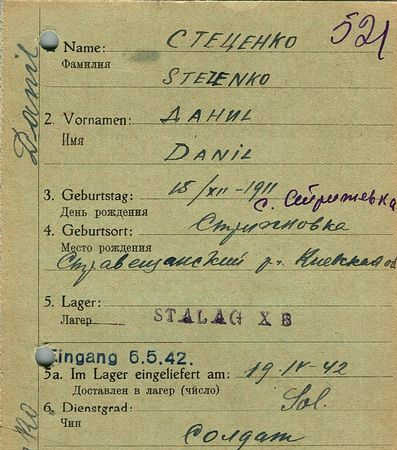 521
1. Name: СТЕЦЕНКО
Фамилия
STEZENKO
2. Vornamen: ДАНИЛ
Имя
DANIL
Danil
3. Geburtstag: 18/XII-1911
День рождения
с. Стрижевка
4. Geburtsort: Стрижовка
Место рождения
Ставещанский р. Киевская об
5. Lager:
Лагер STALAG X B
Eingang 6.5.42.
5a. Im Lager eingeliefert am: 19-IV-42
Доставлен в лагер (число)
6. Dienstgrad: Sol.
Чин
Солдат